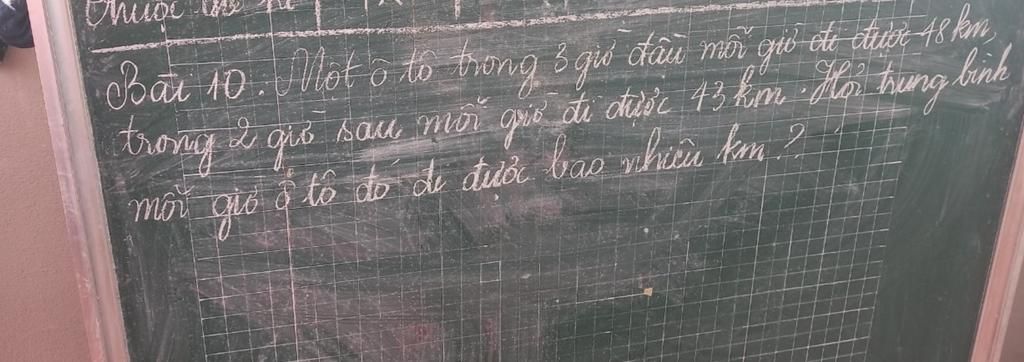 thuộc
Bài 10: Một ô tô trong 3 giờ đầu mỗi giờ đi được 48 km,
trong 2 giờ sau mỗi giờ đi được 43 km. Hỏi trung bình
mỗi giờ ô tô đó đi được bao nhiêu km?